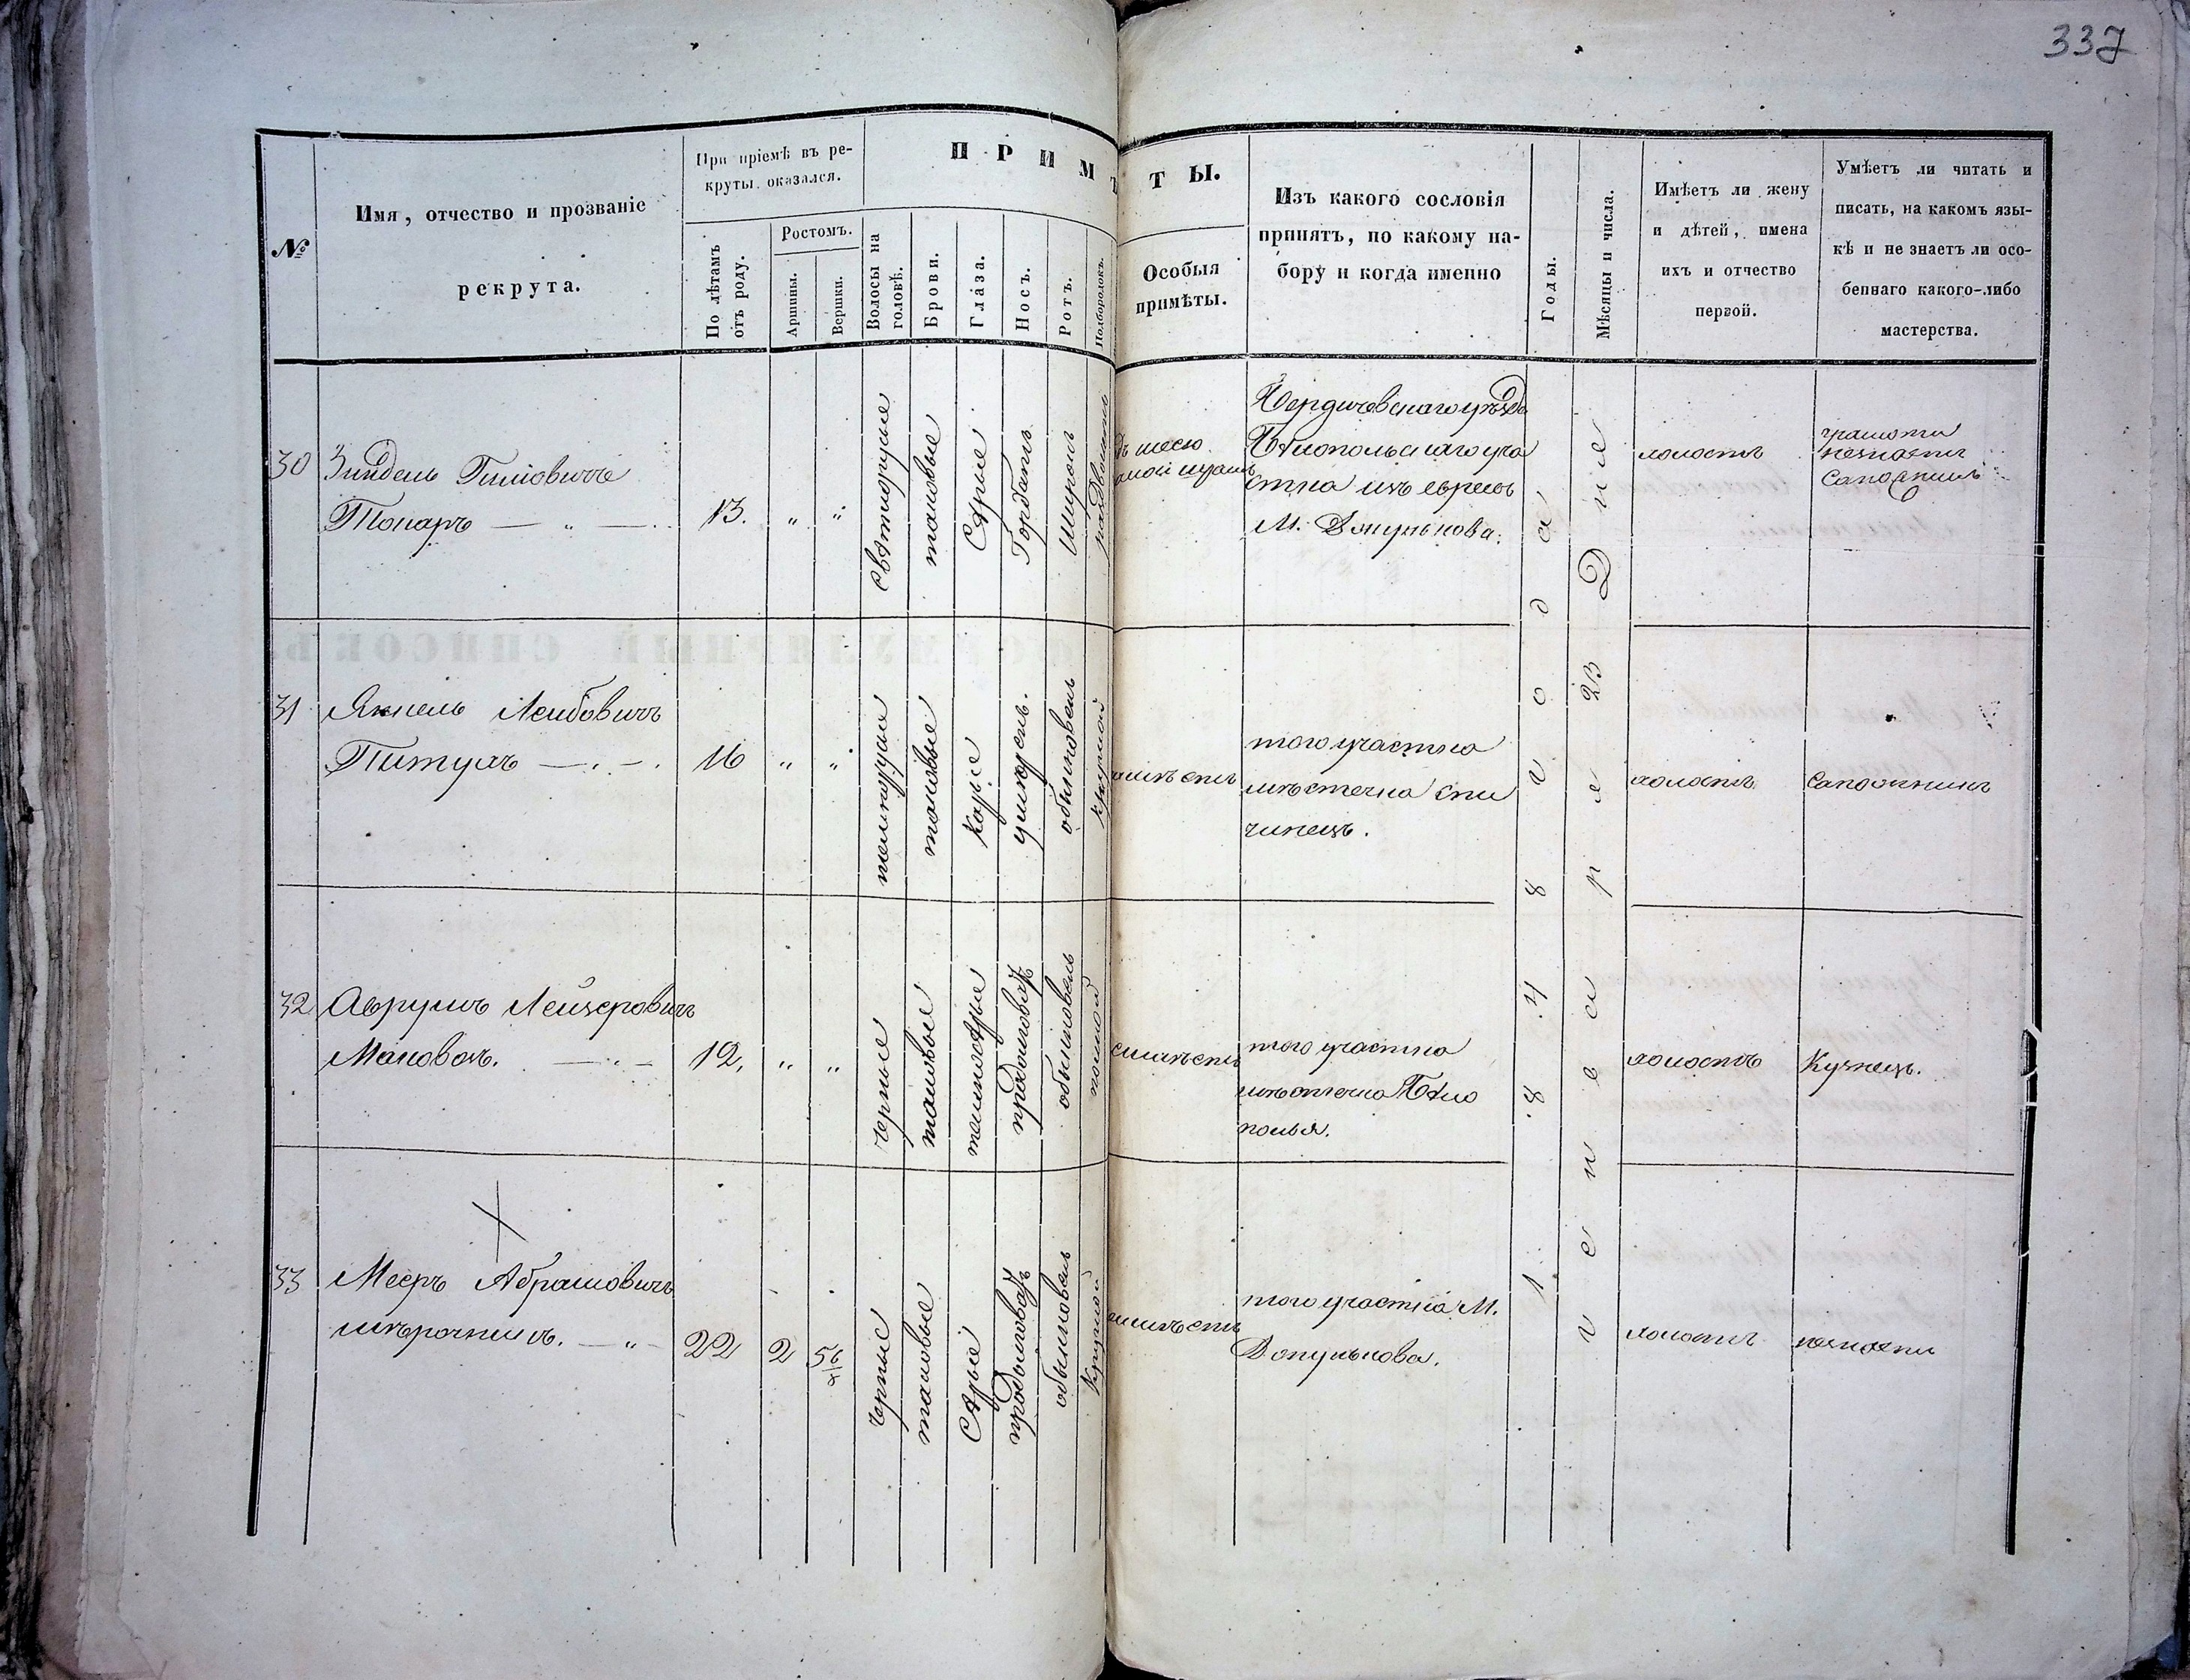 337
ПРИМѢТЫ.
№
Имя, отчество и прозваніе
рекрута.
При пріемѣ въ ре-
круты оказался.
По лѣтамъ
отъ роду.
Ростомъ.
Аршины.
Вершки.
Волосы на
головѣ.
Брови.
Глаза.
Носъ.
Ротъ.
Подбородокъ.
Особыя
примѣты.
Изъ какого сословія
принятъ, по какому на-
бору и когда именно
Годы.
Мѣсяцы и числа.
Имѣетъ ли жену
и дѣтей, имена
ихъ и отчество
первой.
Умѣетъ ли читать и
писать, на какомъ язы-
кѣ и не знаетъ ли осо-
беннаго какого-либо
мастерства.
30
Зиндель
Токаръ — „ —
13.
„
„
свѣтлорусые
таковые
Сѣрые
Горбатъ
Широкъ
раздвоенъ
Бердичевскаго уѣзда
Бѣлопольскаго уча
стка изъ евреевъ
М.
холостъ
грамоты
незнаетъ
Сапожникъ
31
Янкель Лейбовичъ
Питухъ — „ —
16
„
„
темнорусые
таковые
Каріе
обыкновенъ
круглой
того участка
мѣстечка Спи
чинецъ.
холостъ
Сапожникъ
32
Аврумъ Лейзеровичъ
Маковозъ. — „ —
12.
„
„
черные
таковые
темносѣрые
продолговатъ
обыкновенъ
того участка
мѣстечка Бѣло
полья.
холостъ
Кузнецъ.
33
Мееръ Абрамовичъ
Мѣрочникъ. — „ —
22
2
черные
таковые
Сѣрые
продолговатъ
обыкновенъ
Круглой
того участка М.
холостъ
незнаетъ
1848 года
генваря 23 Дне